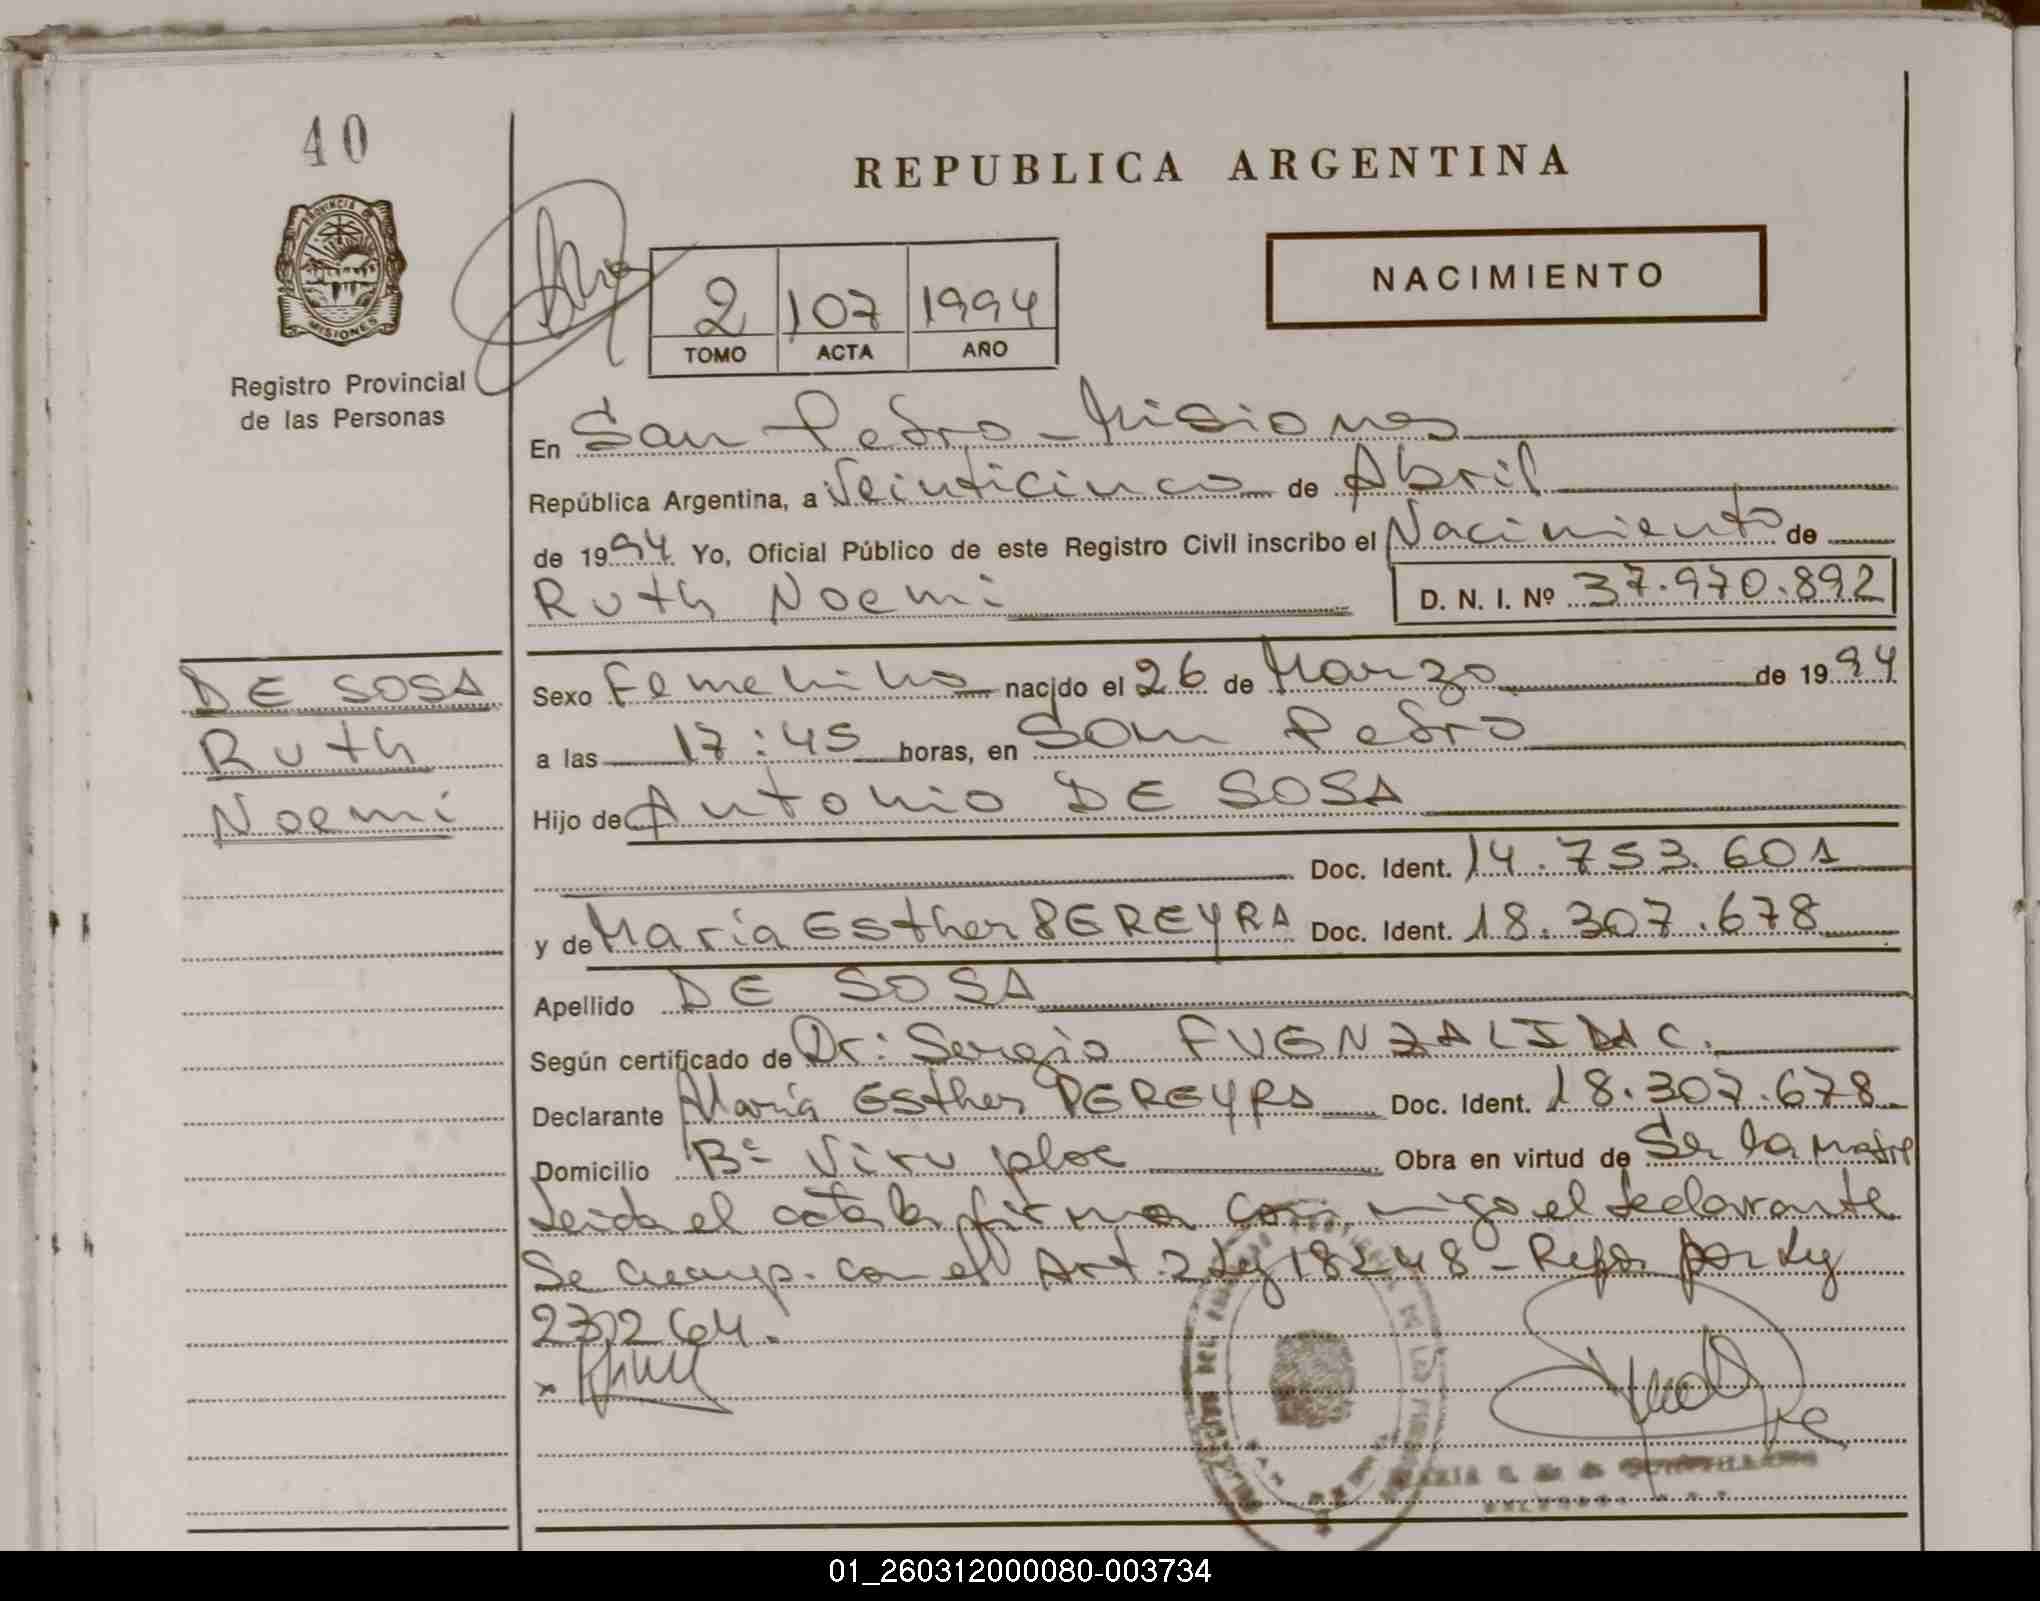 40
REPUBLICA ARGENTINA
PROVINCIA DE
MISIONES
Registro Provincial
de las Personas
2 107 1994
TOMO ACTA AÑO
NACIMIENTO
En San Pedro - Misiones
República Argentina, a Veinticinco de Abril
de 1994 Yo, Oficial Público de este Registro Civil inscribo el Nacimiento de
Ruth Noemi D. N. I. Nº 37.970.892
DE SOSA
Ruth
Noemi
Sexo Femenino nacido el 26 de Marzo de 1994
a las 17:45 horas, en San Pedro
Hijo de Antonio DE SOSA
Doc. Ident. 14.753.601
y de María Esther PEREYRA Doc. Ident. 18.307.678
Apellido DE SOSA
Según certificado de Dr: Sergio FUENZALIDA C.
Declarante María Esther PEREYRA Doc. Ident. 18.307.678
Domicilio Bº Obra en virtud de Ser la Madre
Leida el acta la firma conmigo el declarante
Se con el Art. 2 Ley 18248 - por Ley
23.264.
MARIA
01_260312000080-003734